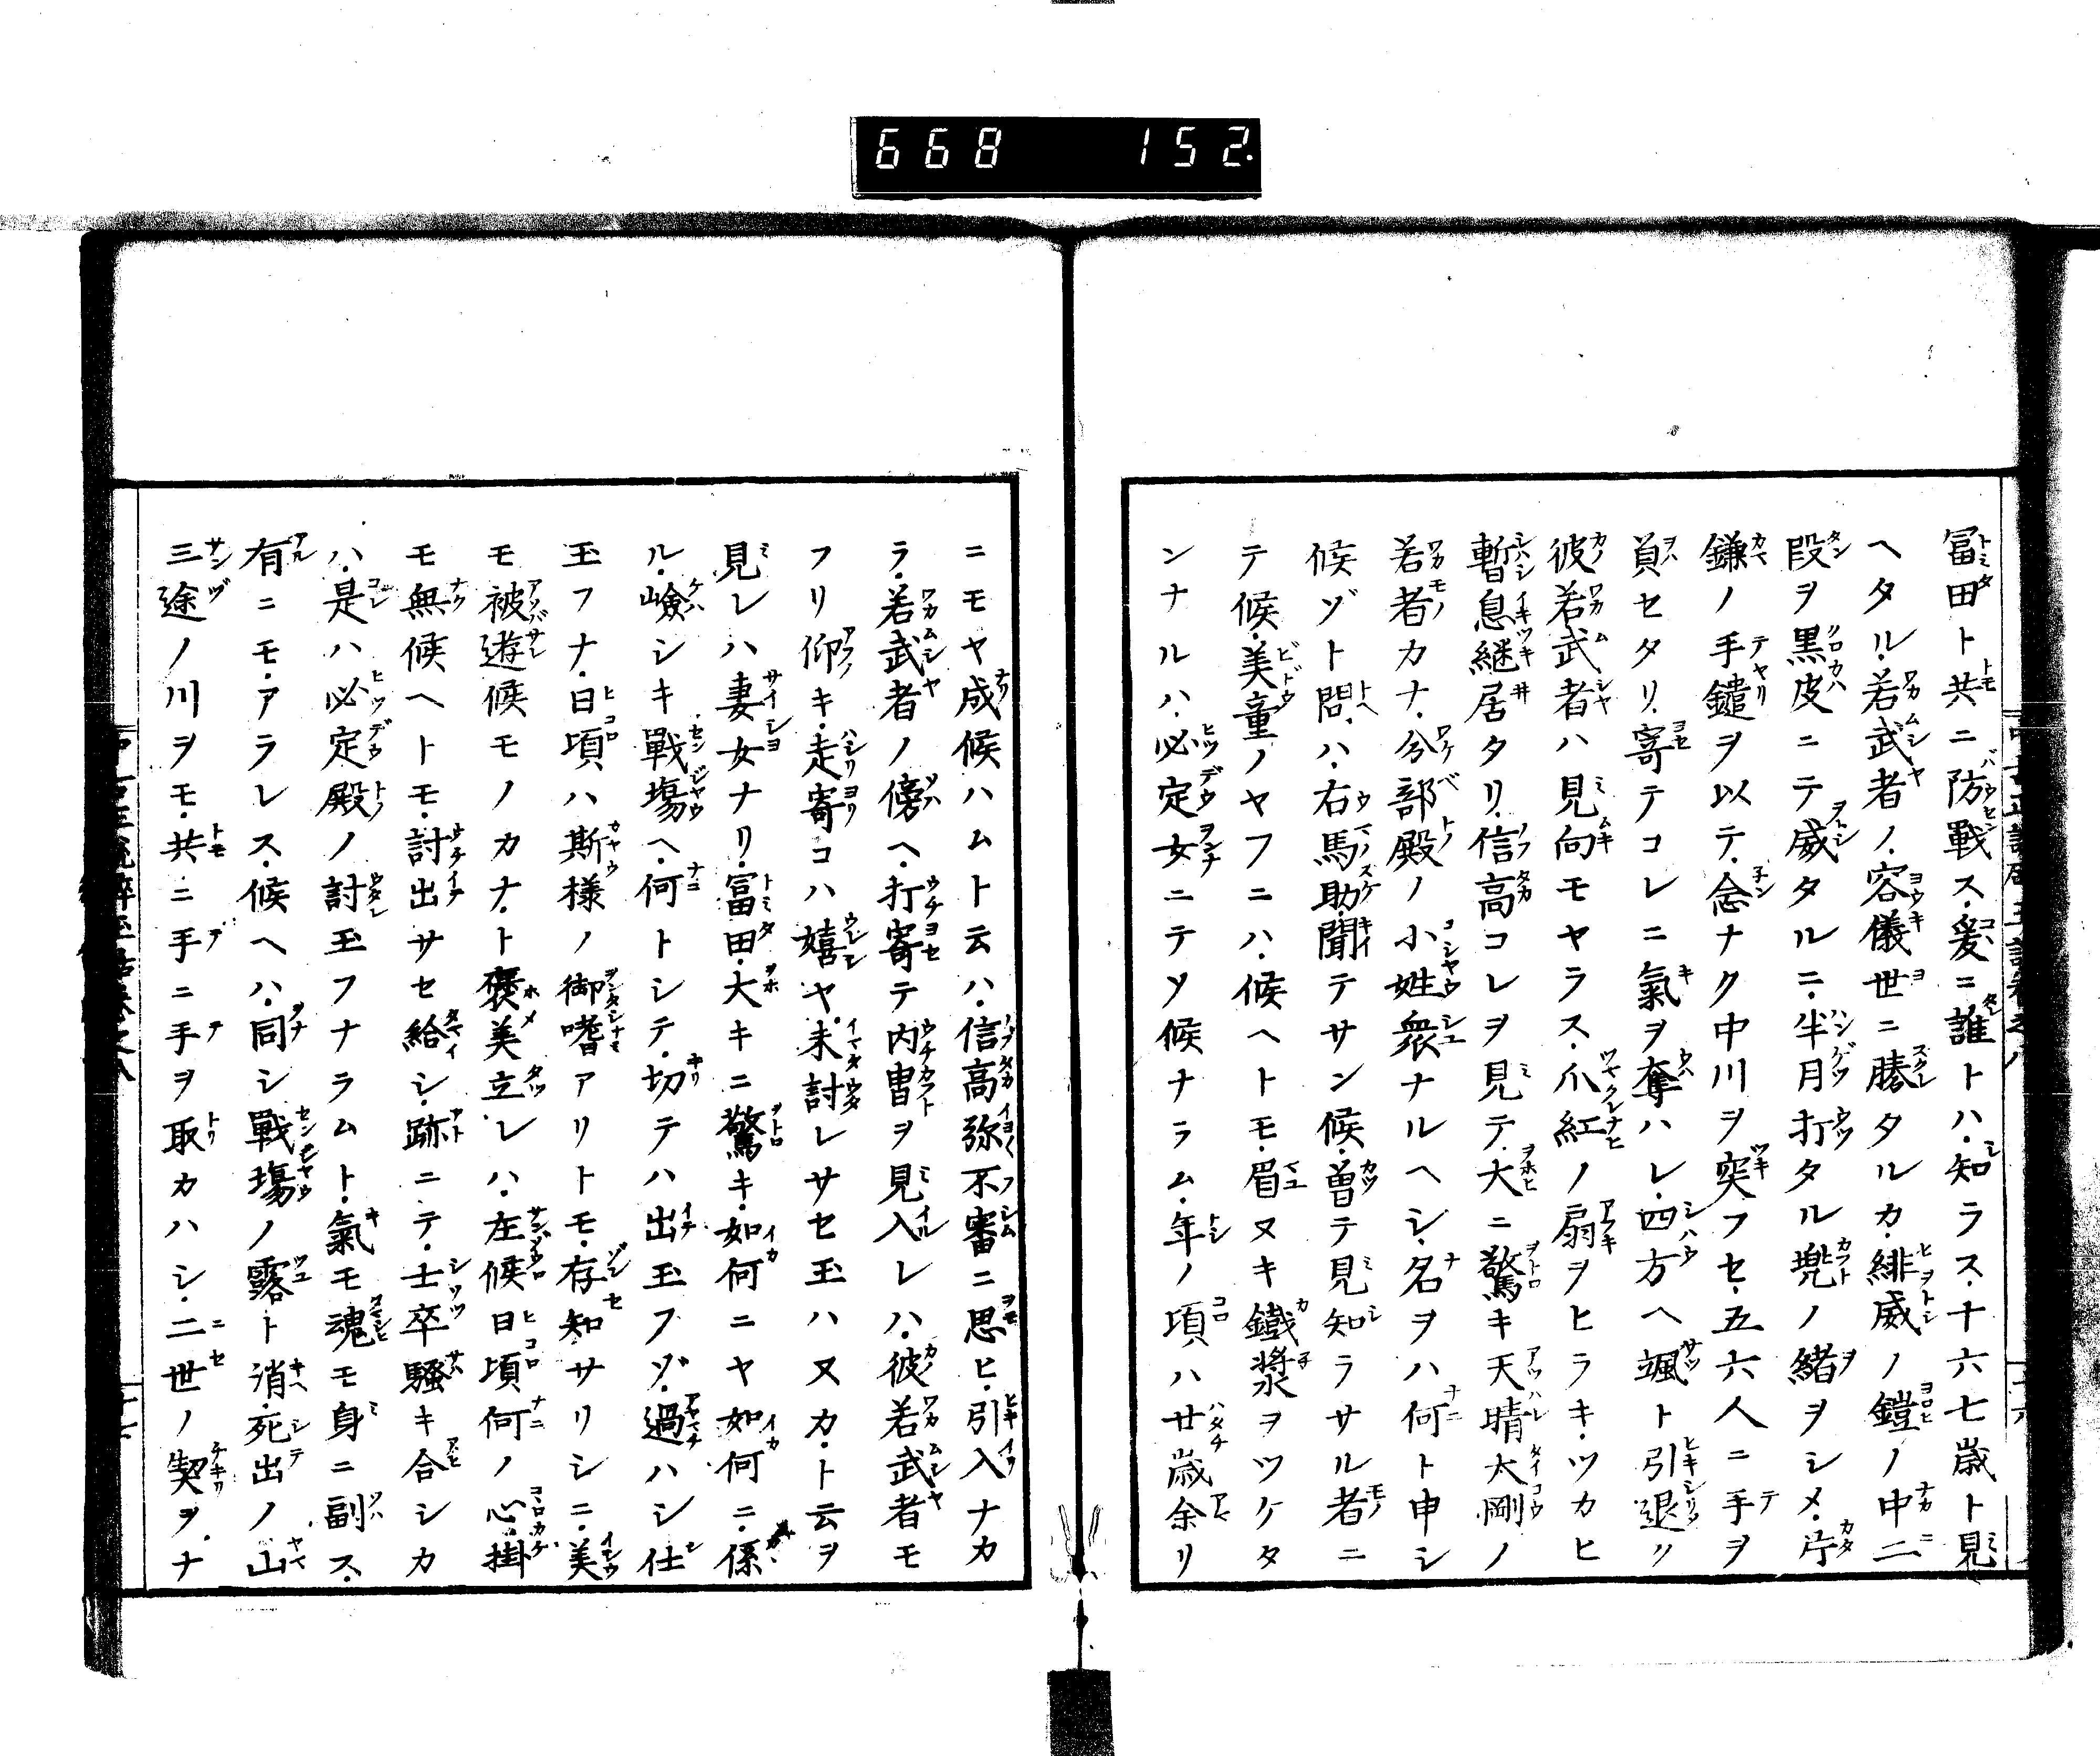 668 152.
冨田ト共ニ防戰ス爰ニ誰トハ知ラス十六七歳ト見
ヘタル若武者ノ容儀世ニ勝タルカ緋威ノ鎧ノ中二
段ヲ黒皮ニテ威タルニ半月打タル兠ノ緒ヲシメ片
鎌ノ手鑓ヲ以テ念ナク中川ヲ突フセ五六人ニ手ヲ
負セタリ寄テコレニ氣ヲ奪ハレ四方ヘ颯ト引退ク
彼若武者ハ見向モヤラス爪紅ノ扇ヲヒラキツカヒ
暫息継居タリ信高コレヲ見テ大ニ驚キ天晴大剛ノ
若者カナ分部殿ノ小姓衆ナルヘシ名ヲハ何ト申シ
候ゾト問ハ右馬助聞テサン候曽テ見知ラサル者ニ
テ候美童ノヤフニハ候ヘトモ眉ヌキ鐵漿ヲツケタ
ンナルハ必定女ニテソ候ナラム年ノ項ハ廿歳余リ
ニモヤ成候ハムト云ハ信高弥不審ニ思ヒ引入ナカ
ラ若武者ノ傍ヘ打寄テ内冑ヲ見入レハ彼若武者モ
フリ仰キ走寄コハ嬉ヤ未討レサセ玉ハヌカト云ヲ
見レハ妻女ナリ冨田大キニ驚キ如何ニヤ如何ニ係
ル嶮シキ戰塲ヘ何トシテ切テハ出玉フゾ過ハシ仕
玉フナ日項ハ斯様ノ御嗜アリトモ存知サリシニ美
モ被遊候モノカナト褒美立レハ左候日項何ノ心掛
モ無候ヘトモ討出サセ給シ跡ニテ士卒騒キ合シカ
ハ是ハ必定殿ノ討玉フナラムト氣モ魂モ身ニ副ス
有ニモアラレス候ヘハ同シ戰塲ノ露ト消死出ノ山
三途ノ川ヲモ共ニ手ニ手ヲ取カハシ二世ノ契ヲナ